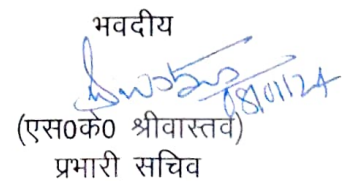 भवदीय
08/01/24
(एस0के0 श्रीवास्तव)
प्रभारी सचिव